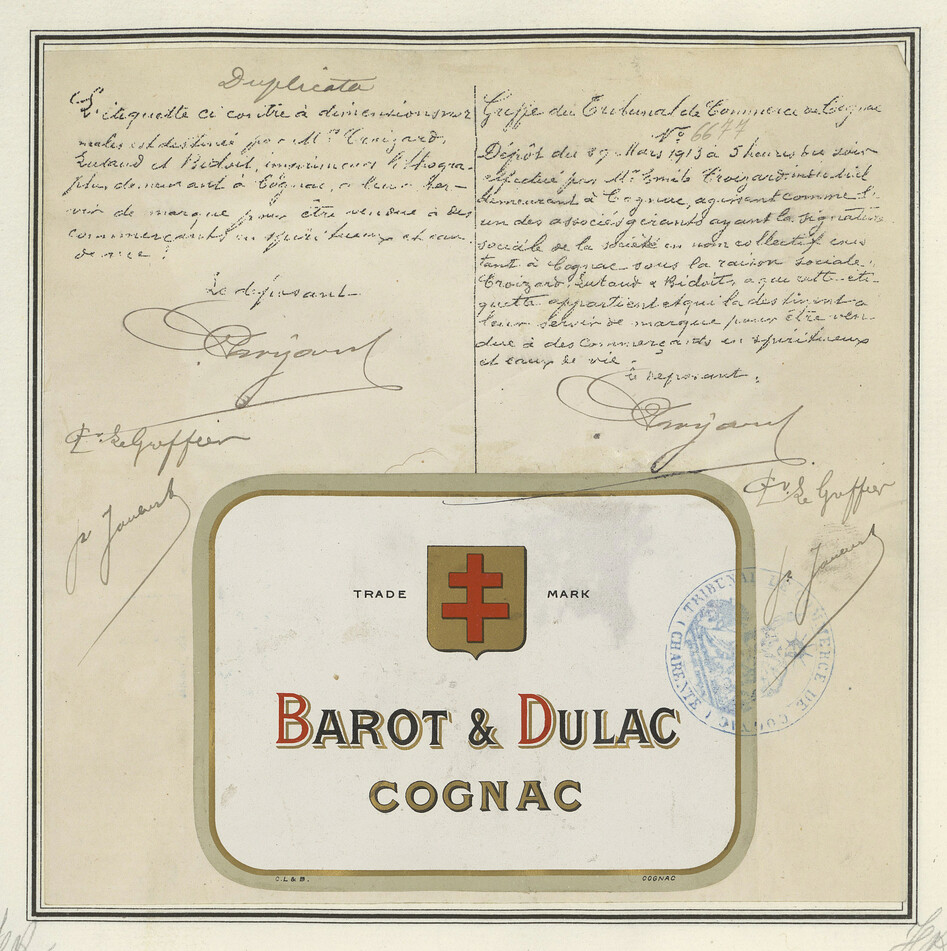 Duplicata
L'étiquette ci contre à dimensions nor
males est destinée par M.rs Croizard,
Lutaud et Bidoit, imprimeurs lithogra-
phes demeurant à Cognac, à leur ser-
vir de marque pour être vendue à des
commerçants en spiritueux et eaux
de vie.
Le déposant
Croizard
Le Greffier
Greffe du Tribunal de Commerce de Cognac
No 6677
Dépôt du 29 Mars 1913 à 5 heures du soir
effectué par Mr Emile Croizard, industriel
demeurant à Cognac, agissant comme l'
un des associés gérants ayant la signature
sociale de la société en nom collectif exis
tant à Cognac sous la raison sociale:
Croizard, Lutaud & Bidoit, à qui cette éti-
quette appartient et qui la destinent à
leur servir de marque pour être ven-
due à des commerçants en spiritueux
et eaux de vie.
Le déposant,
Croizard
Le Greffier
TRADE MARK
BAROT & DULAC
COGNAC
C.L & B. COGNAC
TRIBUNAL DE COMMERCE DE COGNAC (CHARENTE)